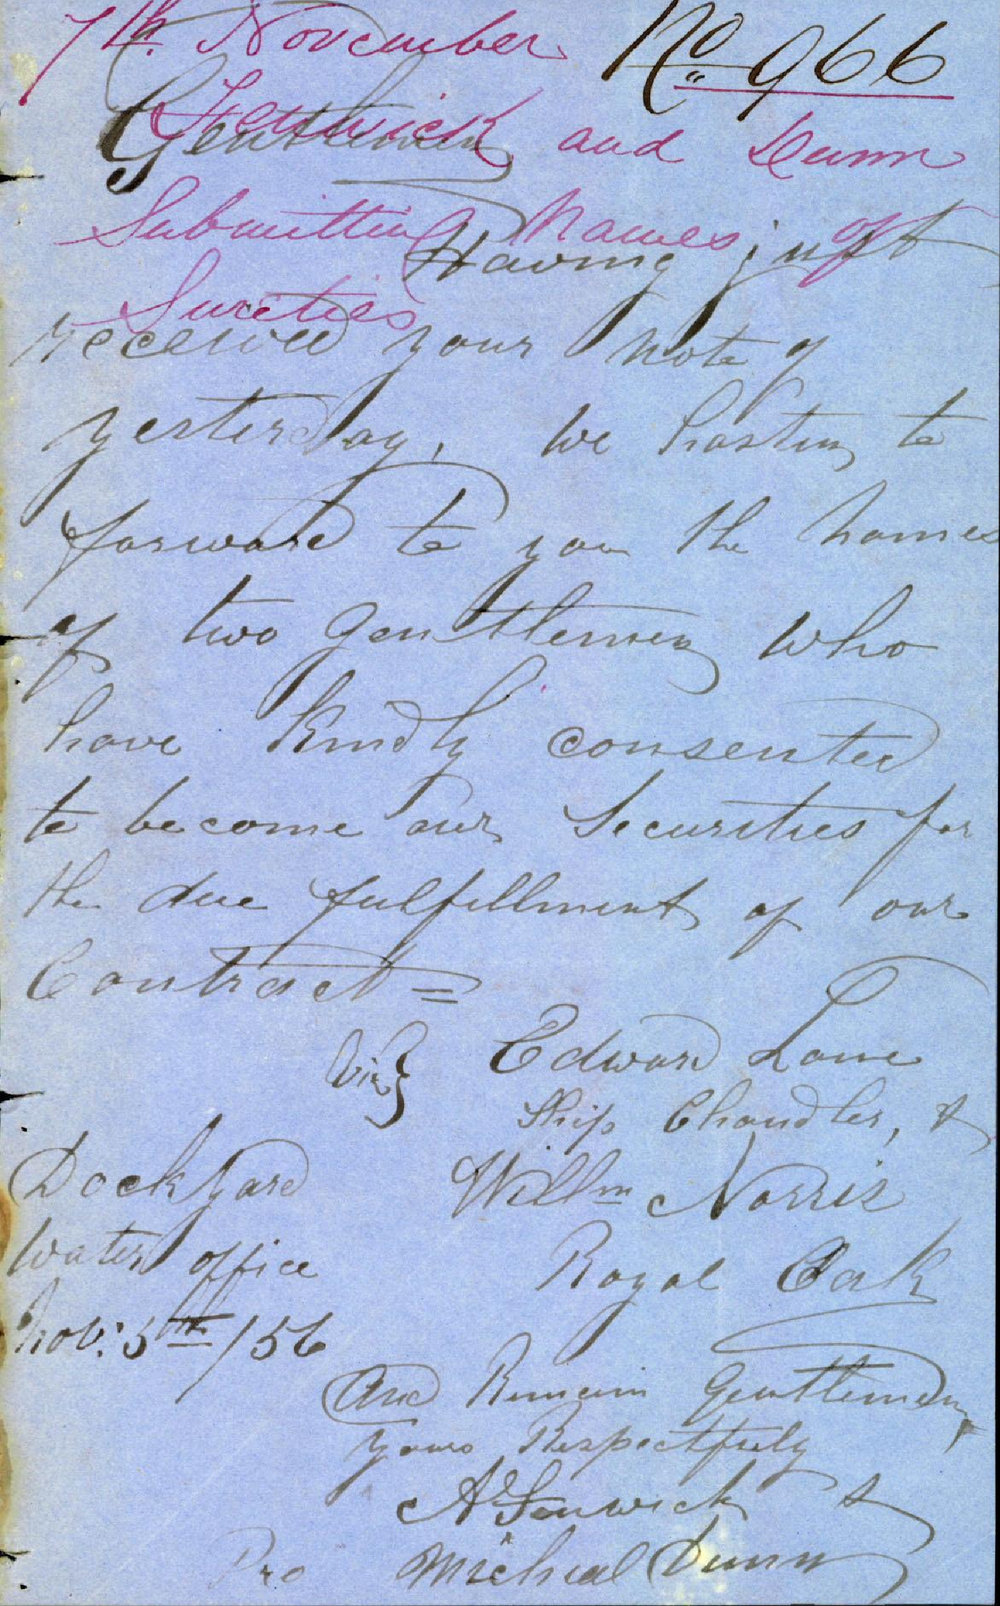 7th. November
No. 966
Fenwick and Dunn
Submitting Names of
Sureties
Gentlemen,
Having just
received your note of
yesterday, we hasten to
forward to you the names
of two Gentlemen who
have kindly consented
to become our Securities for
the due fulfillment of our
Contract =
Viz} Edward Lowe
Ship Chandler, &
Willm Norris
Royal Oak
Dockyard
Water office
Nov: 5th /56
And Remain Gentlemen,
yours Respectfully
A Fenwick &
Pro Micheal Dunn